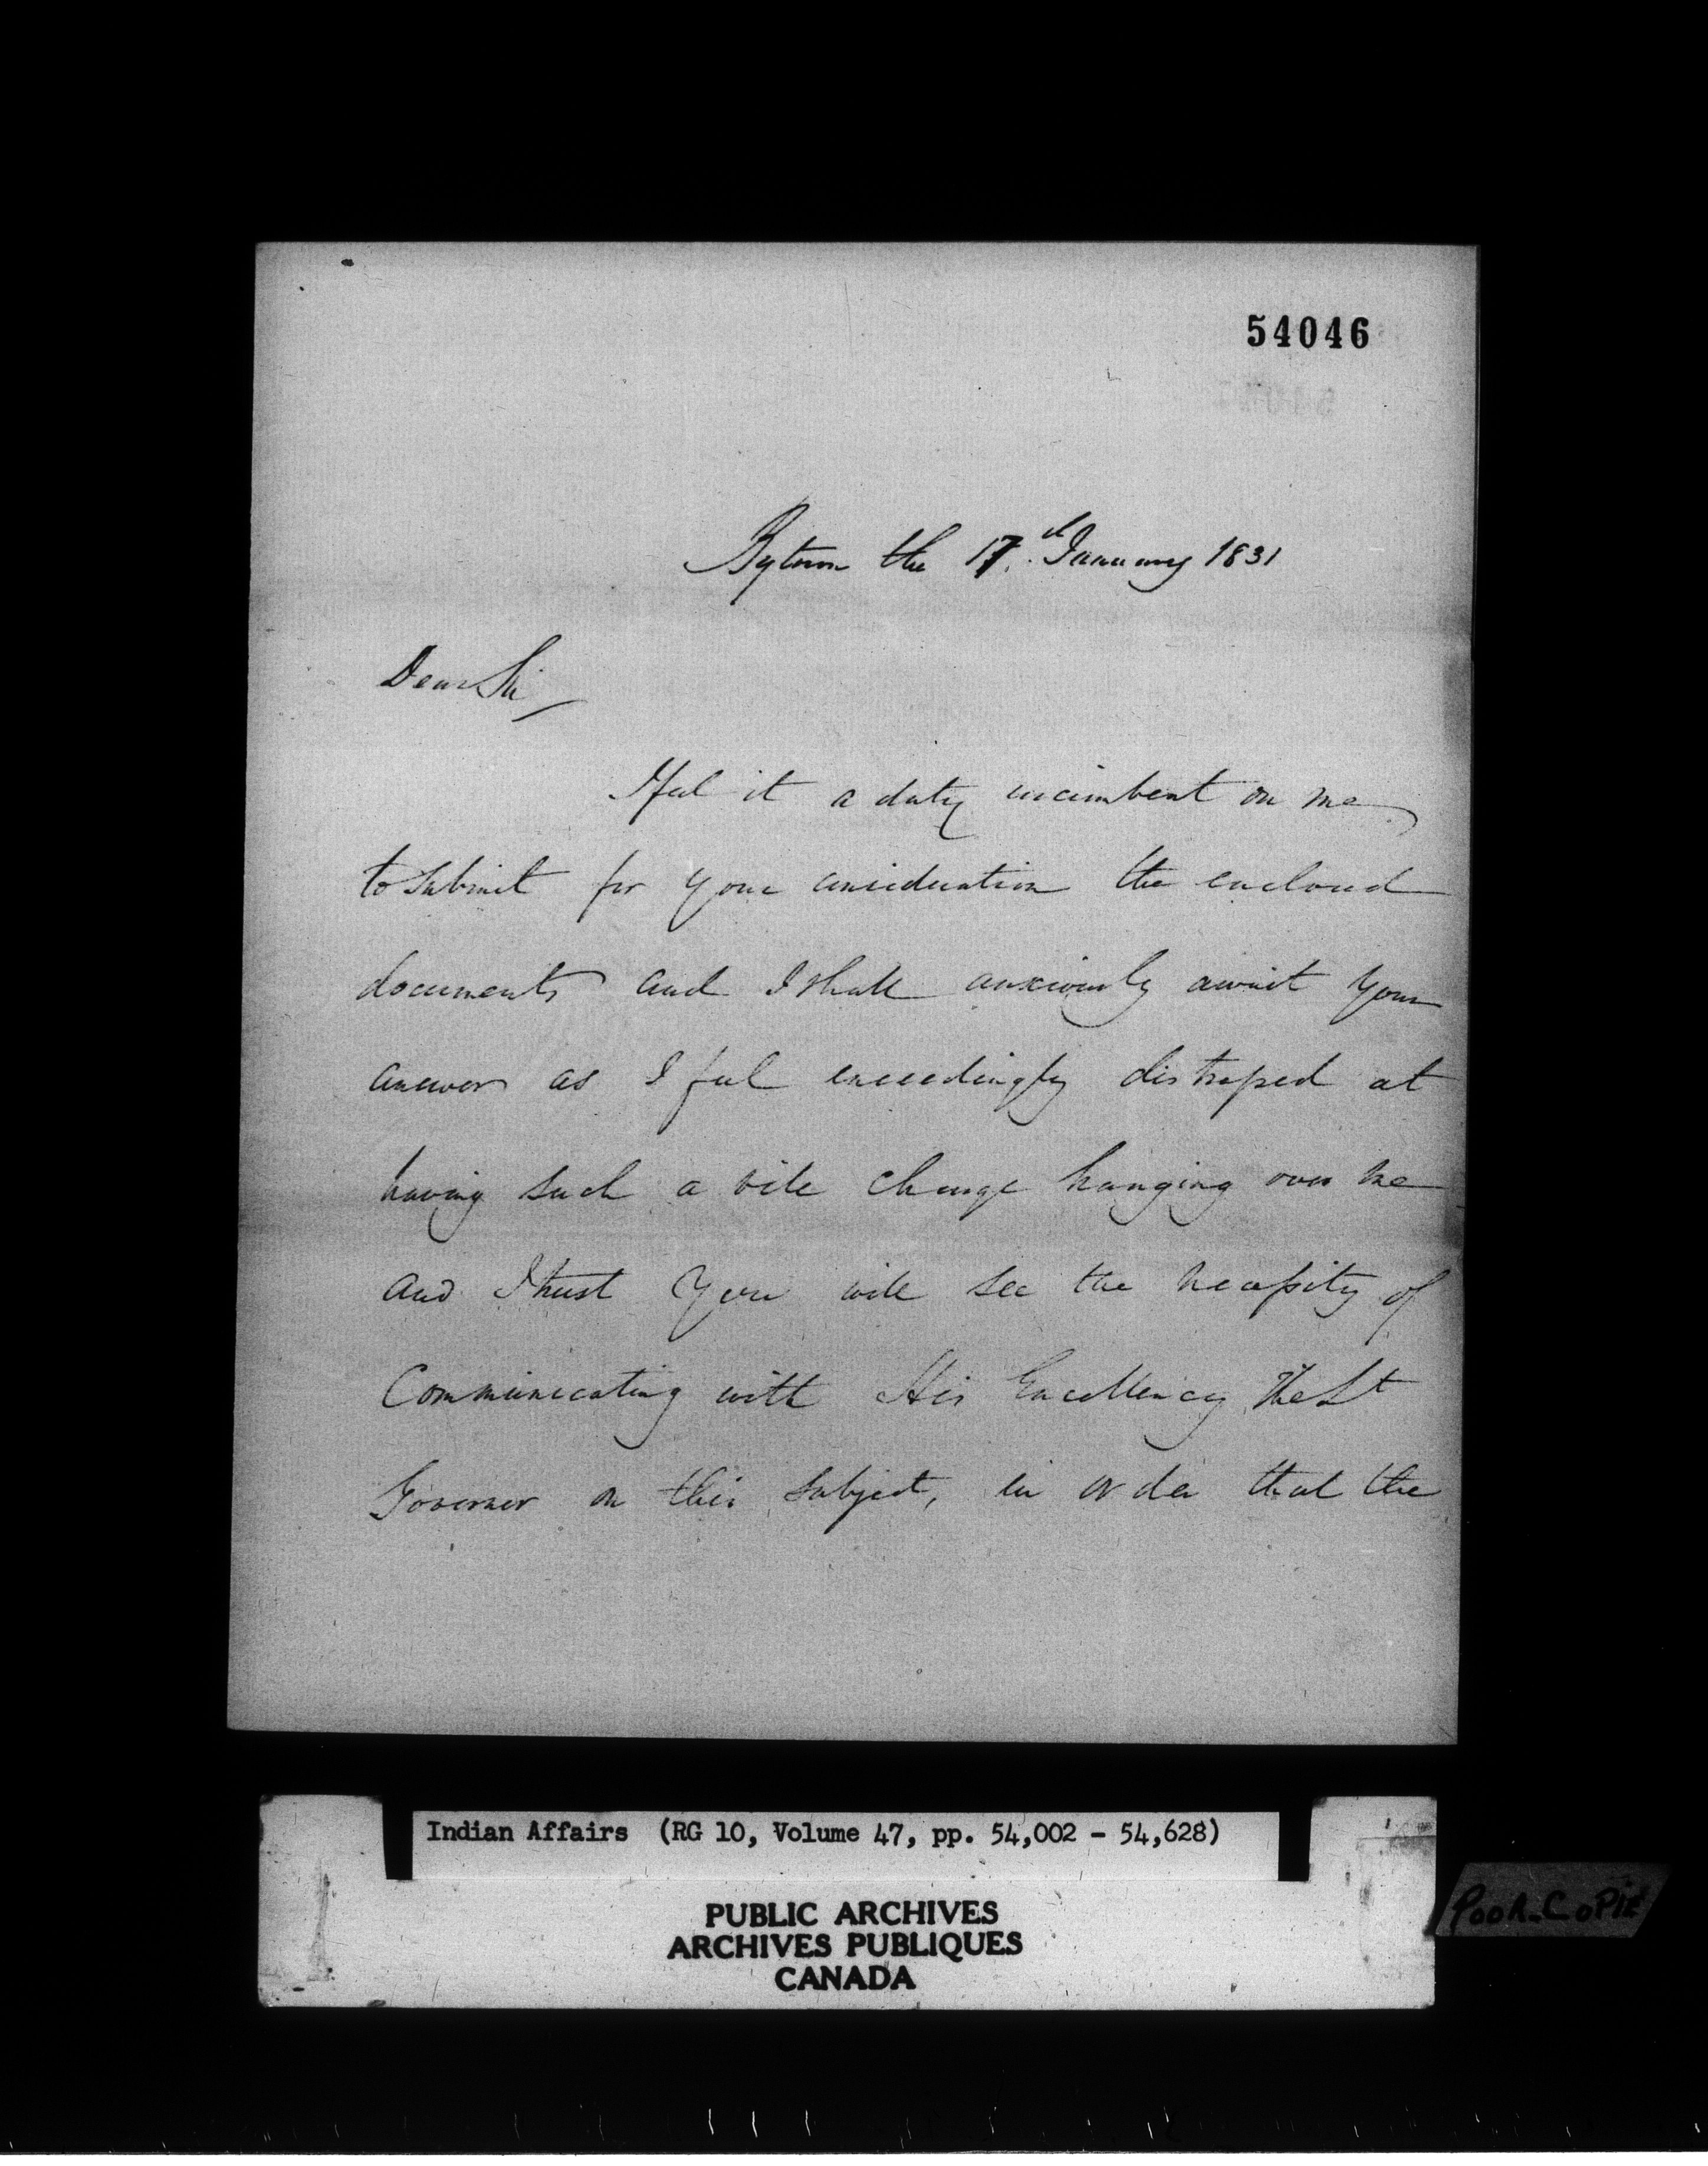 54046
Bytown the 17th January 1831
Dear Sir
I feel it a duty incumbent on me
to submit for your consideration the enclosed
documents and I shall anxiously await your
answer as I feel exceedingly distressed at
having such a vile charge hanging over me
and I trust you will see the necessity of
Communicating with His Excellency The Lt
Governor on this subject, in order that the
Indian Affairs (RG 10, Volume 47, pp. 54,002 - 54,628)
PUBLIC ARCHIVES
ARCHIVES PUBLIQUES
CANADA
POOR COPIE